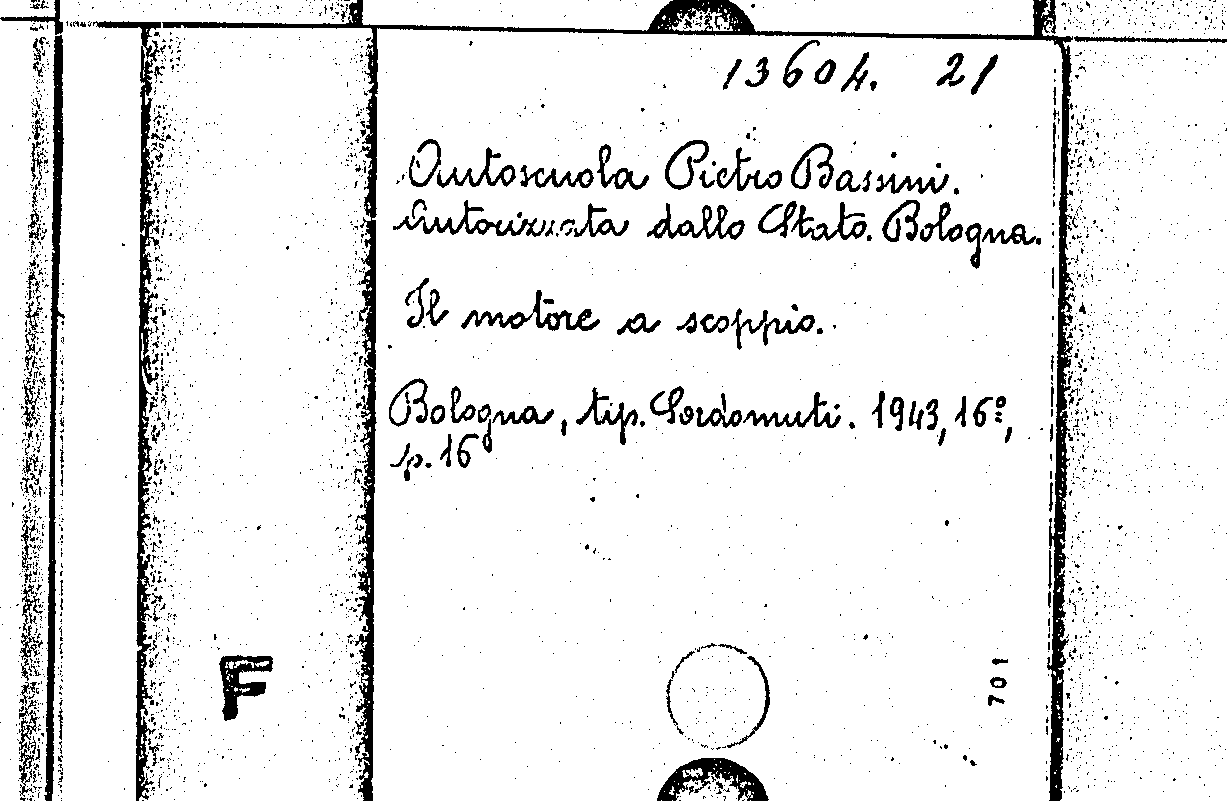 13604. 21
Autoscuola Pietro Bassini.
Autorizzata dallo Stato. Bologna.
Il motore a scoppio.
Bologna, tip. Sordomuti. 1943, 16º,
p. 16
F
701